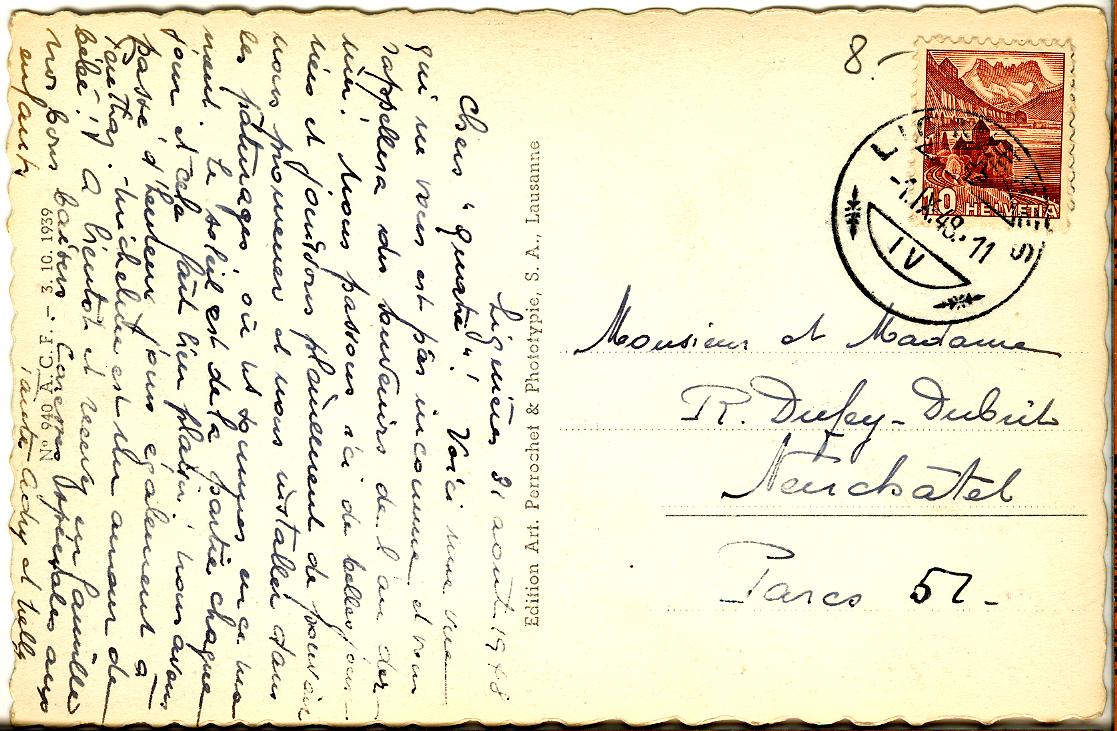 Lignières 31 août 1948
Chers "quatre"! Voici une vue
qui ne vous est pas inconnue et vous
rappellera des souvenirs de l'an der-
nier! Nous passons ici de belles jour-
nées et jouissons pleinement de pouvoir
nous promener et nous installer dans
les pâturages où ns sommes en ce mo-
ment. Le soleil est de la partie chaque
jour et cela fait bien plaisir! nous avons
passé d'heureux jours également à
Micheline est un amour de
bébé! A bientôt et recevez en famille
nos bons baisers Caresses spéciales aux
enfants
tante et
Nº 940 A.C.F. - 3. 10. 1939
Edition Art. Perrochet & Phototypie, S. A., Lausanne
8.-
10 HELVETIA
-1.IX.48.-11
IV
Monsieur et Madame
R. Dufey-Dubuis
Neuchâtel
Parcs 51-